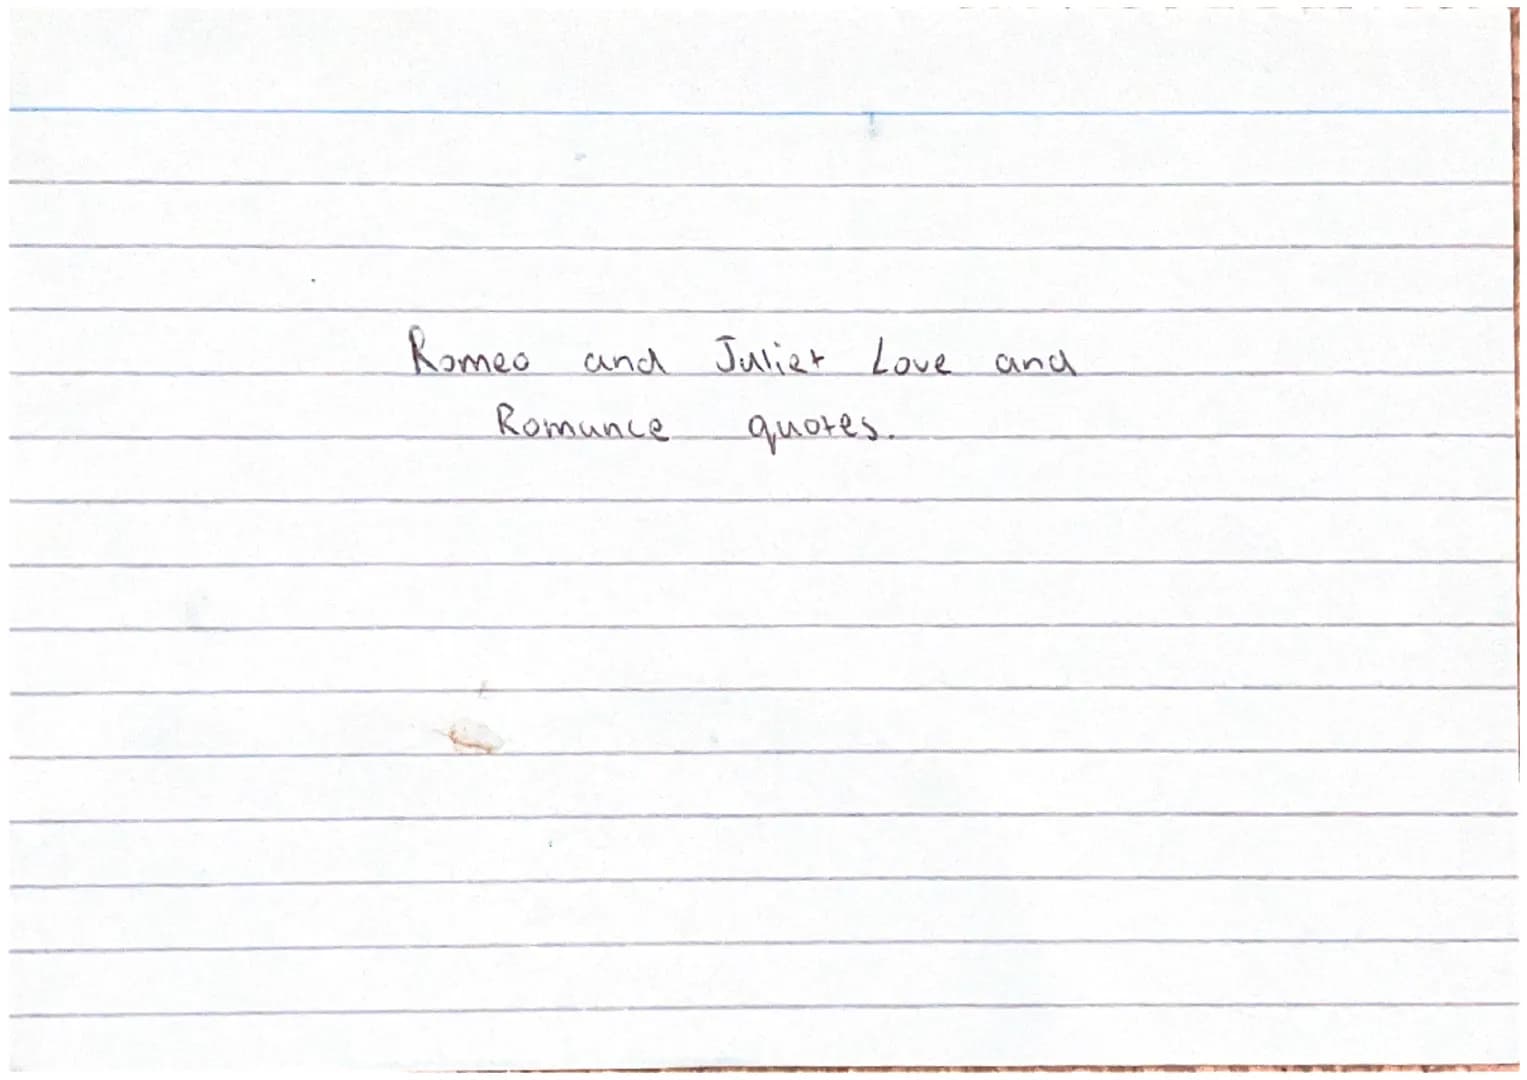 Romeo and Juliet Love and
Romance quotes.